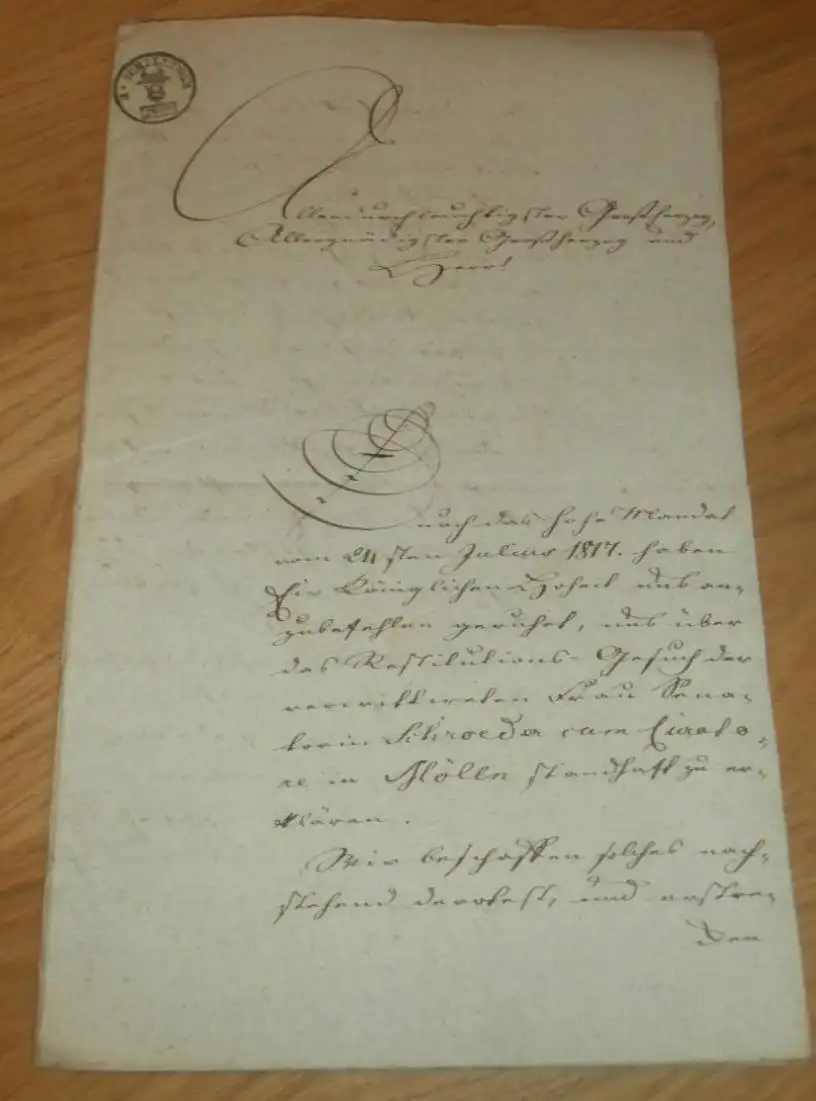 SCHILLINGE
Allerdurchleuchtigster Großherzog,
Allergnädigster Großherzog und
Herr!
nach das hohe Mandat
vom 24sten Julius 1817. haben
Königlichen Hoheit uns an-
zubefehlen geruhet, uns über
das Restitutions-Gesuch der
verwittweten Frau Sena-
torin Schroeder cum Curato-
re in Mölln standhaft zu er-
klären.
Wir beschaffen solches nach-
stehend und
den